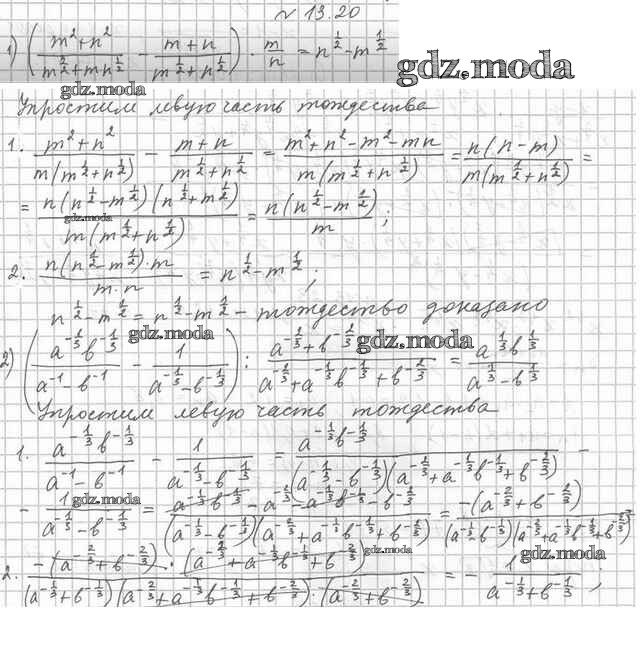 № 13.20
1) ( (m² + n²)/(m^(2/2) + mn^(1/2)) - (m + n)/(m^(1/2) + n^(1/2)) ) · m/n = n^(1/2) - m^(1/2)
gdz.moda
gdz.moda
Упростим левую часть тождества
1. (m² + n²)/(m(m^(1/2) + n^(1/2))) - (m + n)/(m^(1/2) + n^(1/2)) = (m² + n² - m² - mn)/(m(m^(1/2) + n^(1/2))) = n(n - m)/(m(m^(1/2) + n^(1/2))) =
= n(n^(1/2) - m^(1/2))(n^(1/2) + m^(1/2))/(m(m^(1/2) + n^(1/2))) = n(n^(1/2) - m^(1/2))/m ;
gdz.moda
2. n(n^(1/2) - m^(1/2)) · m/(m · n) = n^(1/2) - m^(1/2) ;
n^(1/2) - m^(1/2) = n^(1/2) - m^(1/2) - тождество доказано
gdz.moda
gdz.moda
2) ( a^(-1/3)b^(-1/3)/(a^(-1) - b^(-1)) - 1/(a^(-1/3) - b^(-1/3)) ) : (a^(-2/3) + b^(-2/3))/(a^(-2/3) + a^(-1/3)b^(-1/3) + b^(-2/3)) = a^(1/3)b^(1/3)/(a^(1/3) - b^(1/3))
Упростим левую часть тождества
1. a^(-1/3)b^(-1/3)/(a^(-1) - b^(-1)) - 1/(a^(-1/3) - b^(-1/3)) = a^(-1/3)b^(-1/3)/((a^(-1/3) - b^(-1/3))(a^(-2/3) + a^(-1/3)b^(-1/3) + b^(-2/3))) -
- 1/(a^(-1/3) - b^(-1/3)) = (a^(-1/3)b^(-1/3) - a^(-2/3) - a^(-1/3)b^(-1/3) - b^(-2/3))/((a^(-1/3) - b^(-1/3))(a^(-2/3) + a^(-1/3)b^(-1/3) + b^(-2/3))) = -(a^(-2/3) + b^(-2/3))/((a^(-1/3) - b^(-1/3))(a^(-2/3) + a^(-1/3)b^(-1/3) + b^(-2/3)))
gdz.moda
gdz.moda
gdz.moda
2. -(a^(-2/3) + b^(-2/3)) · (a^(-2/3) + a^(-1/3)b^(-1/3) + b^(-2/3))/((a^(-1/3) + b^(-1/3))(a^(-2/3) + a^(-1/3)b^(-1/3) + b^(-2/3)) · (a^(-2/3) + b^(-2/3))) = - 1/(a^(-1/3) - b^(-1/3)) ;
gdz.moda
gdz.moda